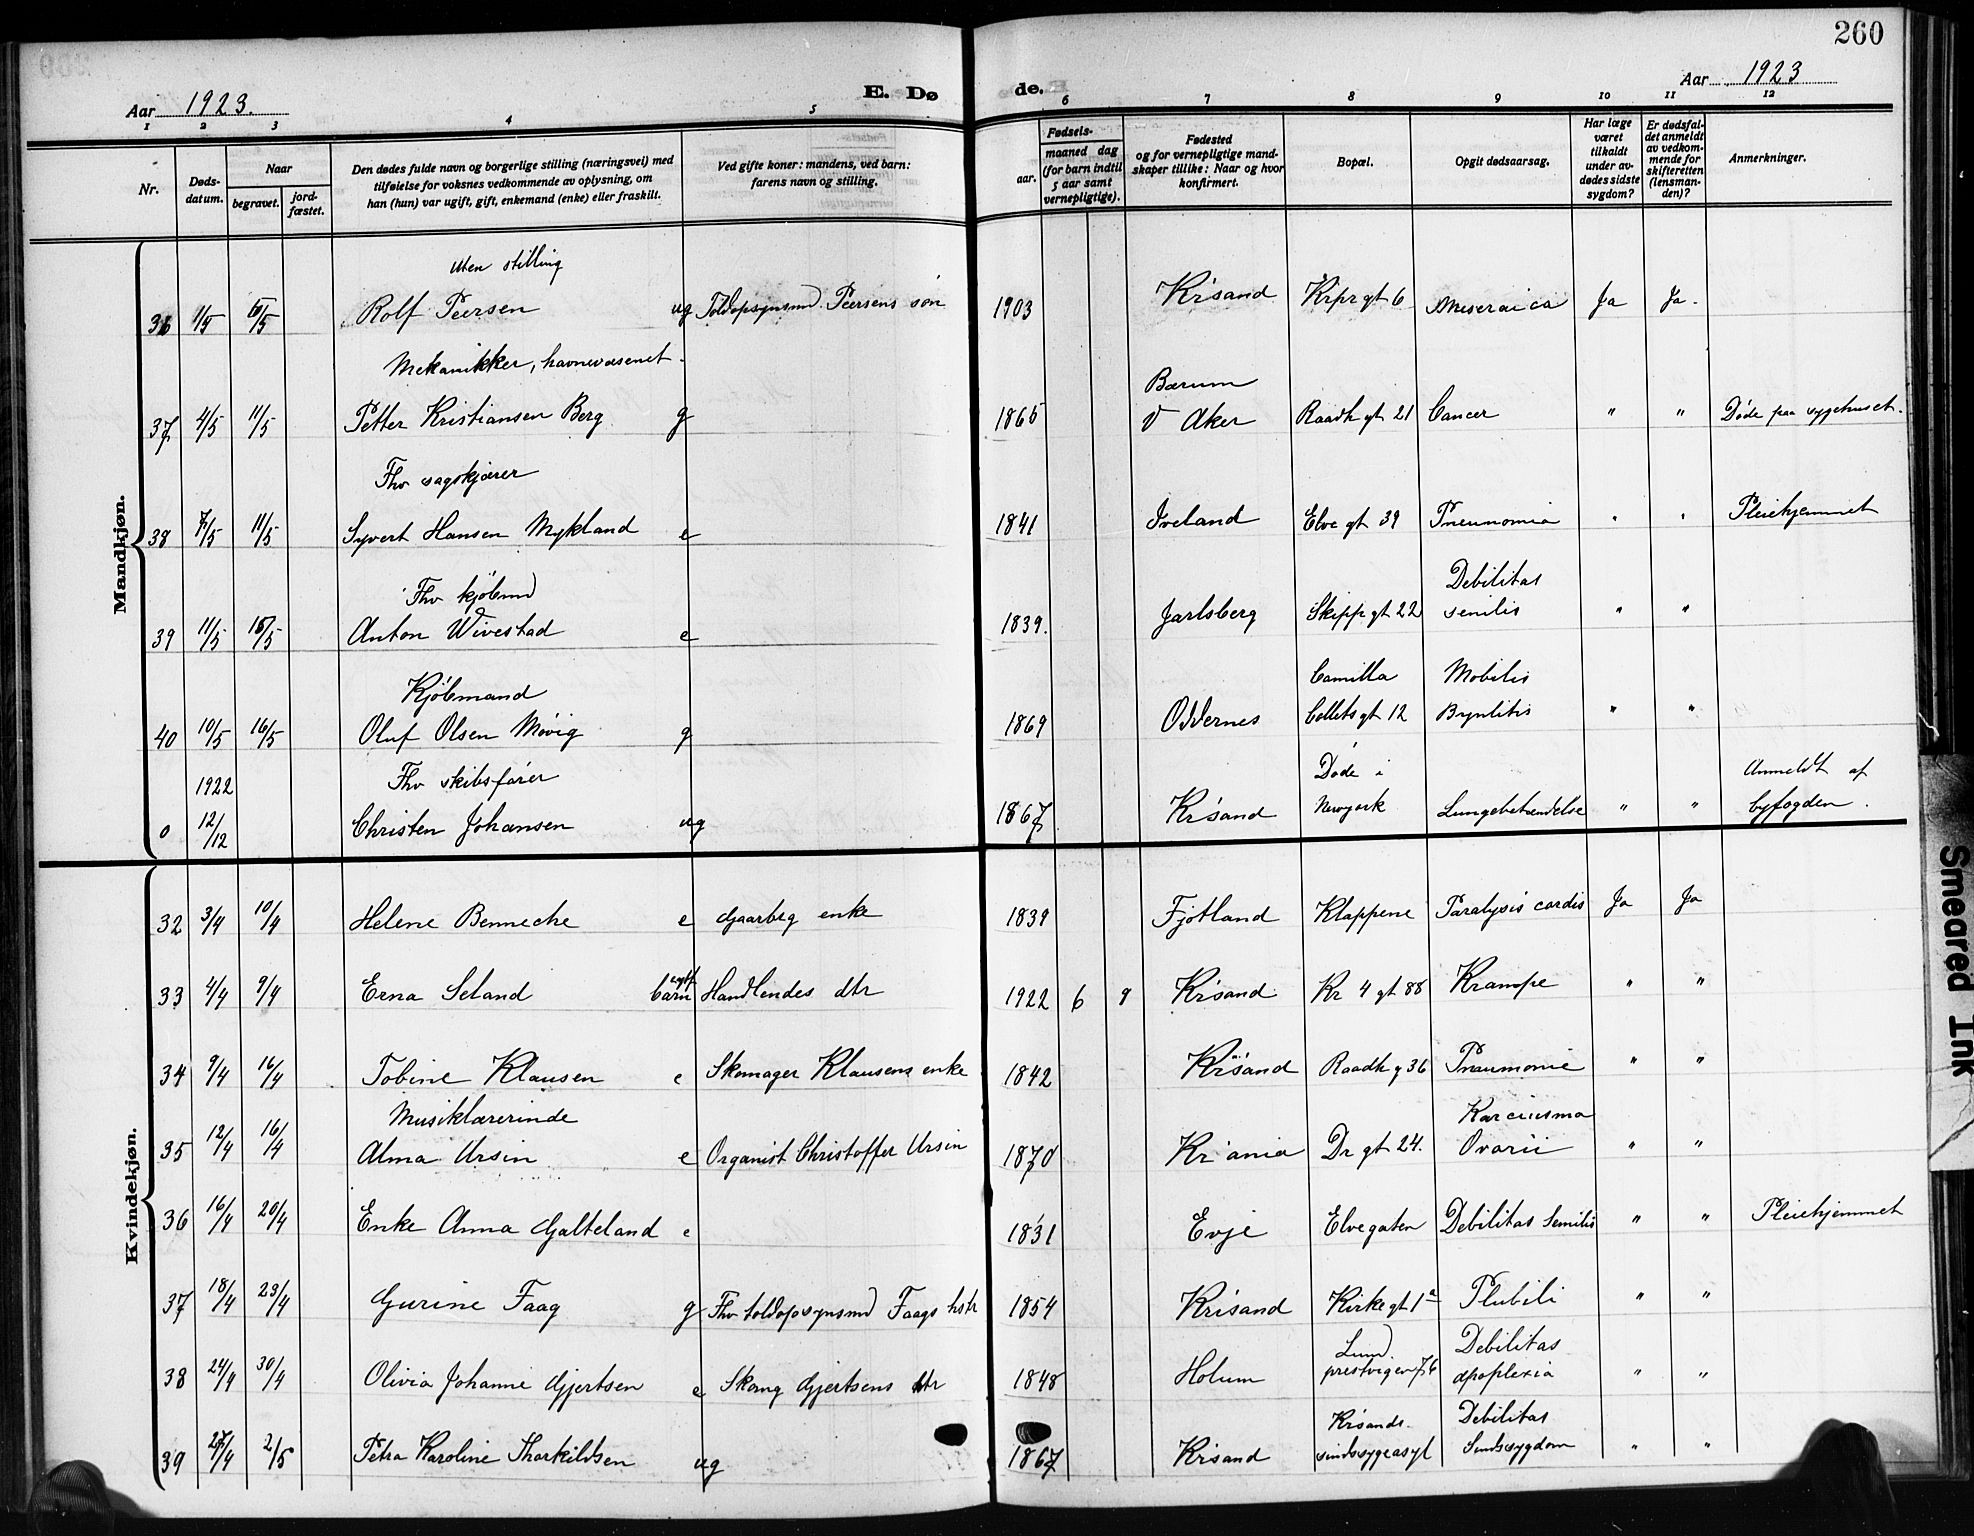 260
Aar 1923.
E. Dø
de.
Aar 1923
1 2 3 4 5 6 7 8 9 10 11 12
Nr.
Døds-
datum.
Naar
begravet.
jord-
fæstet.
Den dødes fulde navn og borgerlige stilling (næringsvei) med
tilføielse for voksnes vedkommende av oplysning, om
han (hun) var ugift, gift, enkemand (enke) eller fraskilt.
Ved gifte koner: mandens, ved barn:
farens navn og stilling.
Fødsels-
aar.
maaned dag
(for barn indtil
5 aar samt
vernepligtige).
Fødested
og for vernepligtige mand-
skaper tillike: Naar og hvor
konfirmert.
Bopæl.
Opgit dødsaarsag.
Har læge
været
tilkaldt
under av-
dødes sidste
sygdom?
Er dødsfal-
det anmeldt
av vedkom-
mende for
skifteretten
(lensman-
den)?
Anmerkninger.
Mandkjøn.
Uten stilling
36 1/5 5/5 Rolf Peersen ug Toldopsynsmd. Peersens søn 1903 Kr'sand Krprgt 6 Ja Ja.
Mekanikker, havnevæsenet.
Bærum
37 4/5 11/5 Petter Kristiansen Berg g 1865 V Aker Raadh gt 21 Cancer " " Døde paa sygehuset.
Fhv sagskjærer
38 7/5 11/5 Syvert Hansen Mykland e 1841 Iveland Elve gt 39 Pneunomia " " Pleiehjemmet
Fhv kjøbmd
Debilitas
39 11/5 15/5 Anton Wivestad e 1839. Jarlsberg Skippr gt 22 senilis " "
Kjøbmand
Camilla Mobilis
40 10/5 16/5 Oluf Olsen Møvig g 1869 Oddernes Collets gt 12 " "
1922 Fhv skibsfører
Døde i
Anmeldt af
0 12/12 Christen Johansen ug 1867 Kr'sand Newyork Lungebetændelse " " byfogden.
Kvindekjøn.
32 3/4 10/4 Helene Bennecke e Gaarbrg enke 1839 Fjotland Klappene Paralysis cordis Ja Ja
33 4/4 9/4 Erna Seland egtf barn Handlendes dtr 1922 6 9 Kr'sand Kr 4 gt 88 Krampe " "
34 9/4 16/4 Tobine Klausen e Skomager Klausens enke 1842 Kr'sand Raadh g 36 Pneumonie " "
Musiklærerinde
Karcinoma
35 12/4 16/4 Alma Ursin e Organist Christoffer Ursin 1870 Kr'ania Dr gt 24. Ovarii " "
36 16/4 20/4 Enke Anna Galteland e 1831 Evje Elvegaten Debilitas Senilis " " Pleiehjemmet
37 18/4 23/4 Gurine Faag g Fhv toldopsynsmd Faags hstr 1854 Kr'sand Kirkegt 1a " "
Lund.
Debilitas
38 24/4 30/4 Olivia Johanne Gjertsen e Skomg Gjertsens dtr 1848 Holum prestvigen 76 apoplexia " "
Kr'sands
Debilitas
39 27/4 2/5 Petra Karoline Thorkildsen ug 1867 Kr'sand sindssygeasyl Sindssygdom " "
Smeared Ink